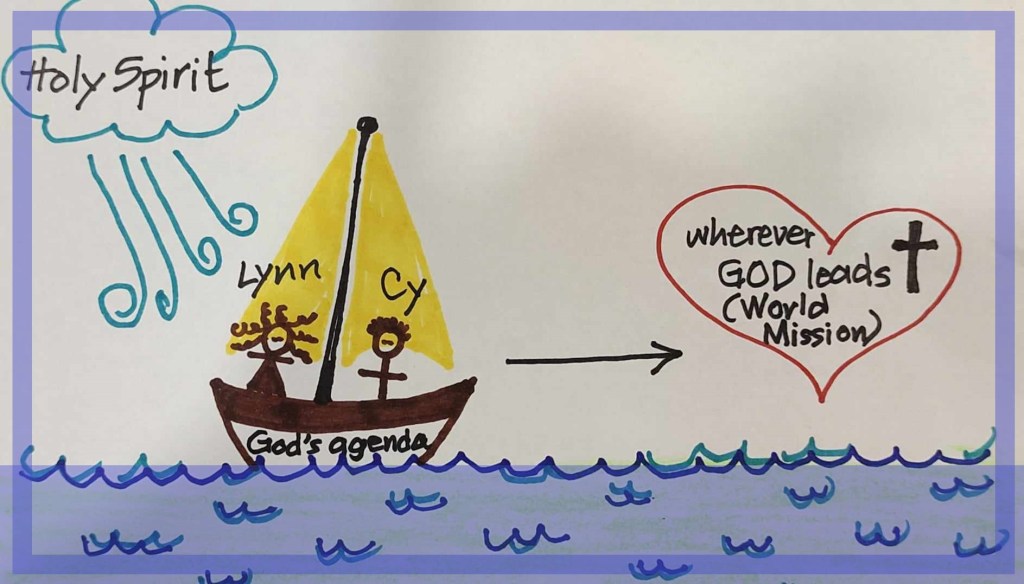 Holy Spirit
Lynn
Cy
God's agenda
wherever
GOD leads
(World
Mission)